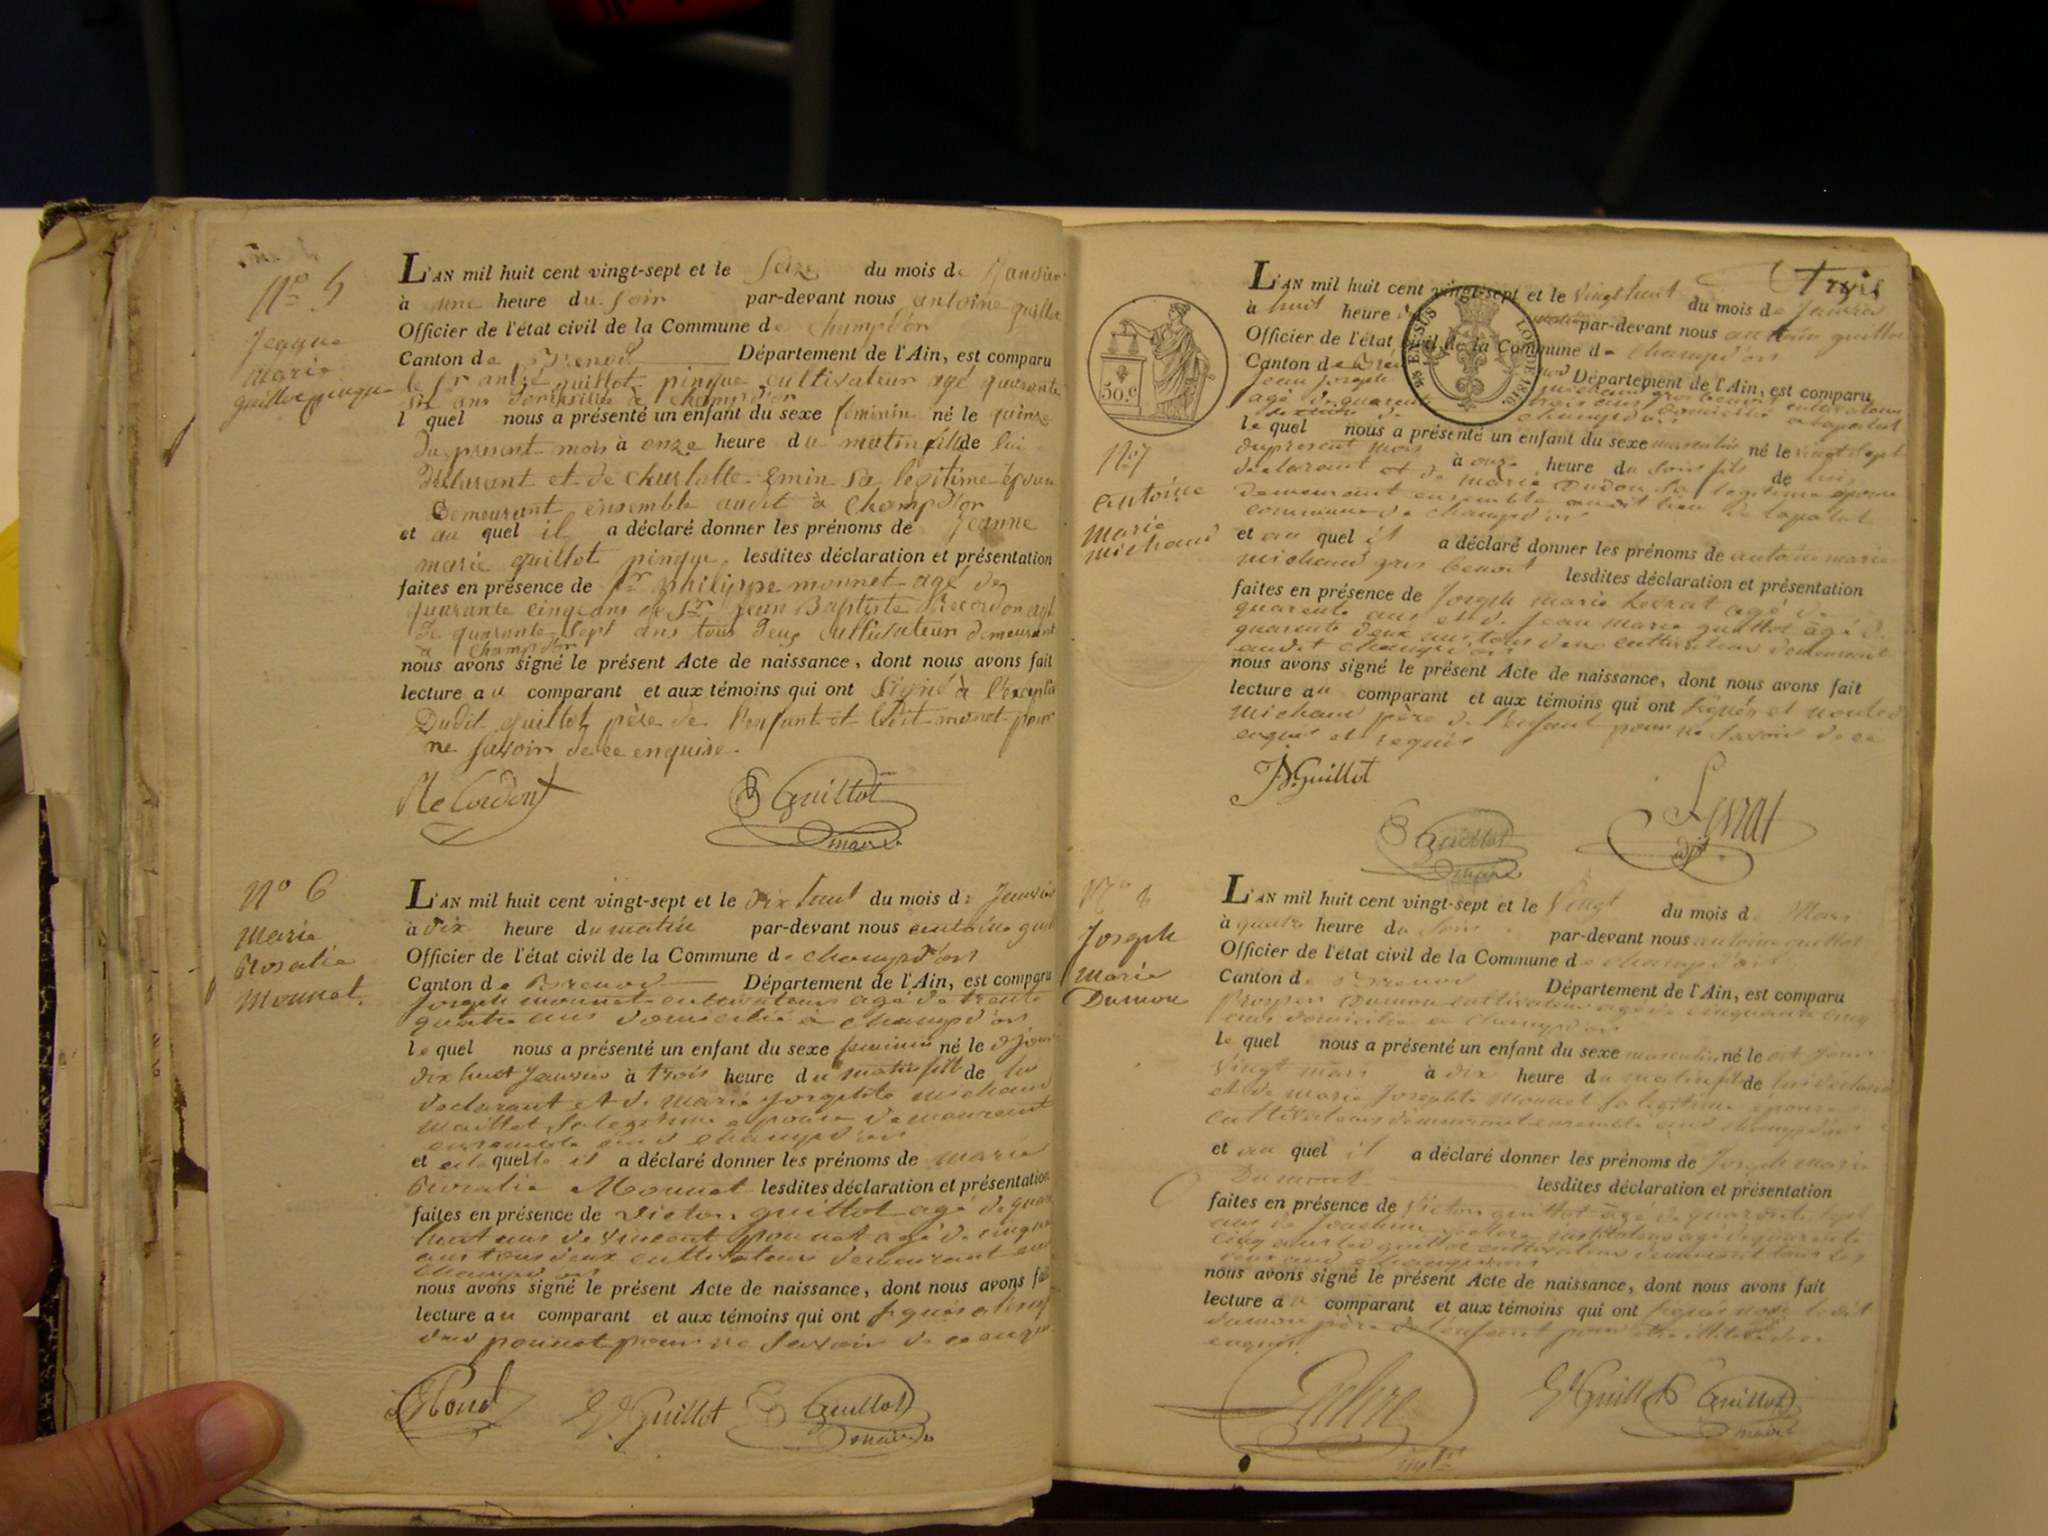 N.º 5
Jeanne
marie
guillot pinque
L'AN mil huit cent vingt-sept et le Seize du mois de Janvier
à une heure du Soir par-devant nous antoine guillot
Officier de l'état civil de la Commune de Champd'or
Canton de Brenod Département de l'Ain, est comparu
le Sr andré guillot pinque cultivateur agé quarante
six ans domicilié à champd'or
lequel nous a présenté un enfant du sexe feminin né le quinze
du present mois à onze heure du matin fille de lui
déclarant et de Charlotte Emin Sa legitime épouse
Demeurant ensemble audit à Champd'or
et au quel il a déclaré donner les prénoms de Jeanne
marie guillot pinque lesdites déclaration et présentation
faites en présence de Sr philippe monnet agé de
quarante cinq ans et Sr jean Baptiste Recordon agé
de quarante Sept ans tous deux cultivateur demeurant
à Champd'or
nous avons signé le présent Acte de naissance, dont nous avons fait
lecture au comparant et aux témoins qui ont Signé à l'exception
Dudit guillot père de l'enfant et ledit monet pour
ne Savoir de ce enquise.
ReCordon
Guillot
maire
N.º 6
Marie
Rosalie
Monnet.
L'AN mil huit cent vingt-sept et le dix huit du mois de Janvier
à dix heure du matin par-devant nous antoine guil
Officier de l'état civil de la Commune de champd'or
Canton de Brenod Département de l'Ain, est comparu
Joseph monnet cultivateur agé de trente
quatre ans domicilié à champd'or
lequel nous a présenté un enfant du sexe feminin né le
dix huit Janvier à trois heure du matin fille de lui
declarant et de marie Josephte michaud
maillet Sa legitime epouse demeurant
ensemble champd'or
et quel il a déclaré donner les prénoms de marie
Rosalie Monnet lesdites déclaration et présentation
faites en présence de victor guillot agé de quara
huit ans de vincent ponnet agé de cinqua
ans tous deux cultivateur demeurant
champd'or
nous avons signé le présent Acte de naissance, dont nous avons fait
lecture au comparant et aux témoins qui ont Signés
ponnet pour ne Savoir de ce enqui
Guillot
Guillot
maire
Trois
50.c
LOI DE 1816
N.º 7
antoine
marie
michaud
L'AN mil huit cent vingt-sept et le vingt huit du mois de Janvier
à huit heure par-devant nous antoine guillot
Officier de l'état civil de la Commune de champd'or
Canton de Département de l'Ain, est comparu
Jean Joseph michaud gros benoit
agé de quarente trois ans cultivateur
champd'or domicilié
lequel nous a présenté un enfant du sexe masculin né le vingt Sept
du present mois à onze heure du Soir fils de lui
declarant et de marie Dudon Sa legitime epouse
demeurant ensemble audit lieu de
commune de champd'or
et au quel il a déclaré donner les prénoms de antoine marie
michaud gros benoit lesdites déclaration et présentation
faites en présence de Joseph marie Levrat agé de
quarente ans et de Jean marie guillot agé de
quarente deux ans tous deux cultivateur demeurant
audit champd'or
nous avons signé le présent Acte de naissance, dont nous avons fait
lecture au comparant et aux témoins qui ont Signés et nonledit
michaud père de l'enfant pour ne Savoir de ce
enquis et requis
Guillot
Guillot
maire
Levrat
N.º 8
Joseph
Marie
Dumon
L'AN mil huit cent vingt-sept et le Vingt du mois de Mars
à quatre heure du Soir par-devant nous antoine guillot
Officier de l'état civil de la Commune de champd'or
Canton de Brenod Département de l'Ain, est comparu
Prosper Dumon cultivateur agé de cinquante cinq
ans domicilié à champd'or
lequel nous a présenté un enfant du sexe masculin né le cet jour
Vingt mars à dix heure du matin fils de lui declarant
et de marie Josephte Monnet Sa legitime épouse
cultivateurs demeurant ensemble champd'or
et au quel il a déclaré donner les prénoms de Joseph marie
Dumont lesdites déclaration et présentation
faites en présence de Victor guillot agé de quarente Sept
ans de Joachim instituteur agé de quarente
cinq ans guillot cultivateur demeurant tous les
deux champd'or
nous avons signé le présent Acte de naissance, dont nous avons fait
lecture au comparant et aux témoins qui ont Signés non ledit
dumon père de l'enfant pour
enquis
Guillot
Guillot
maire